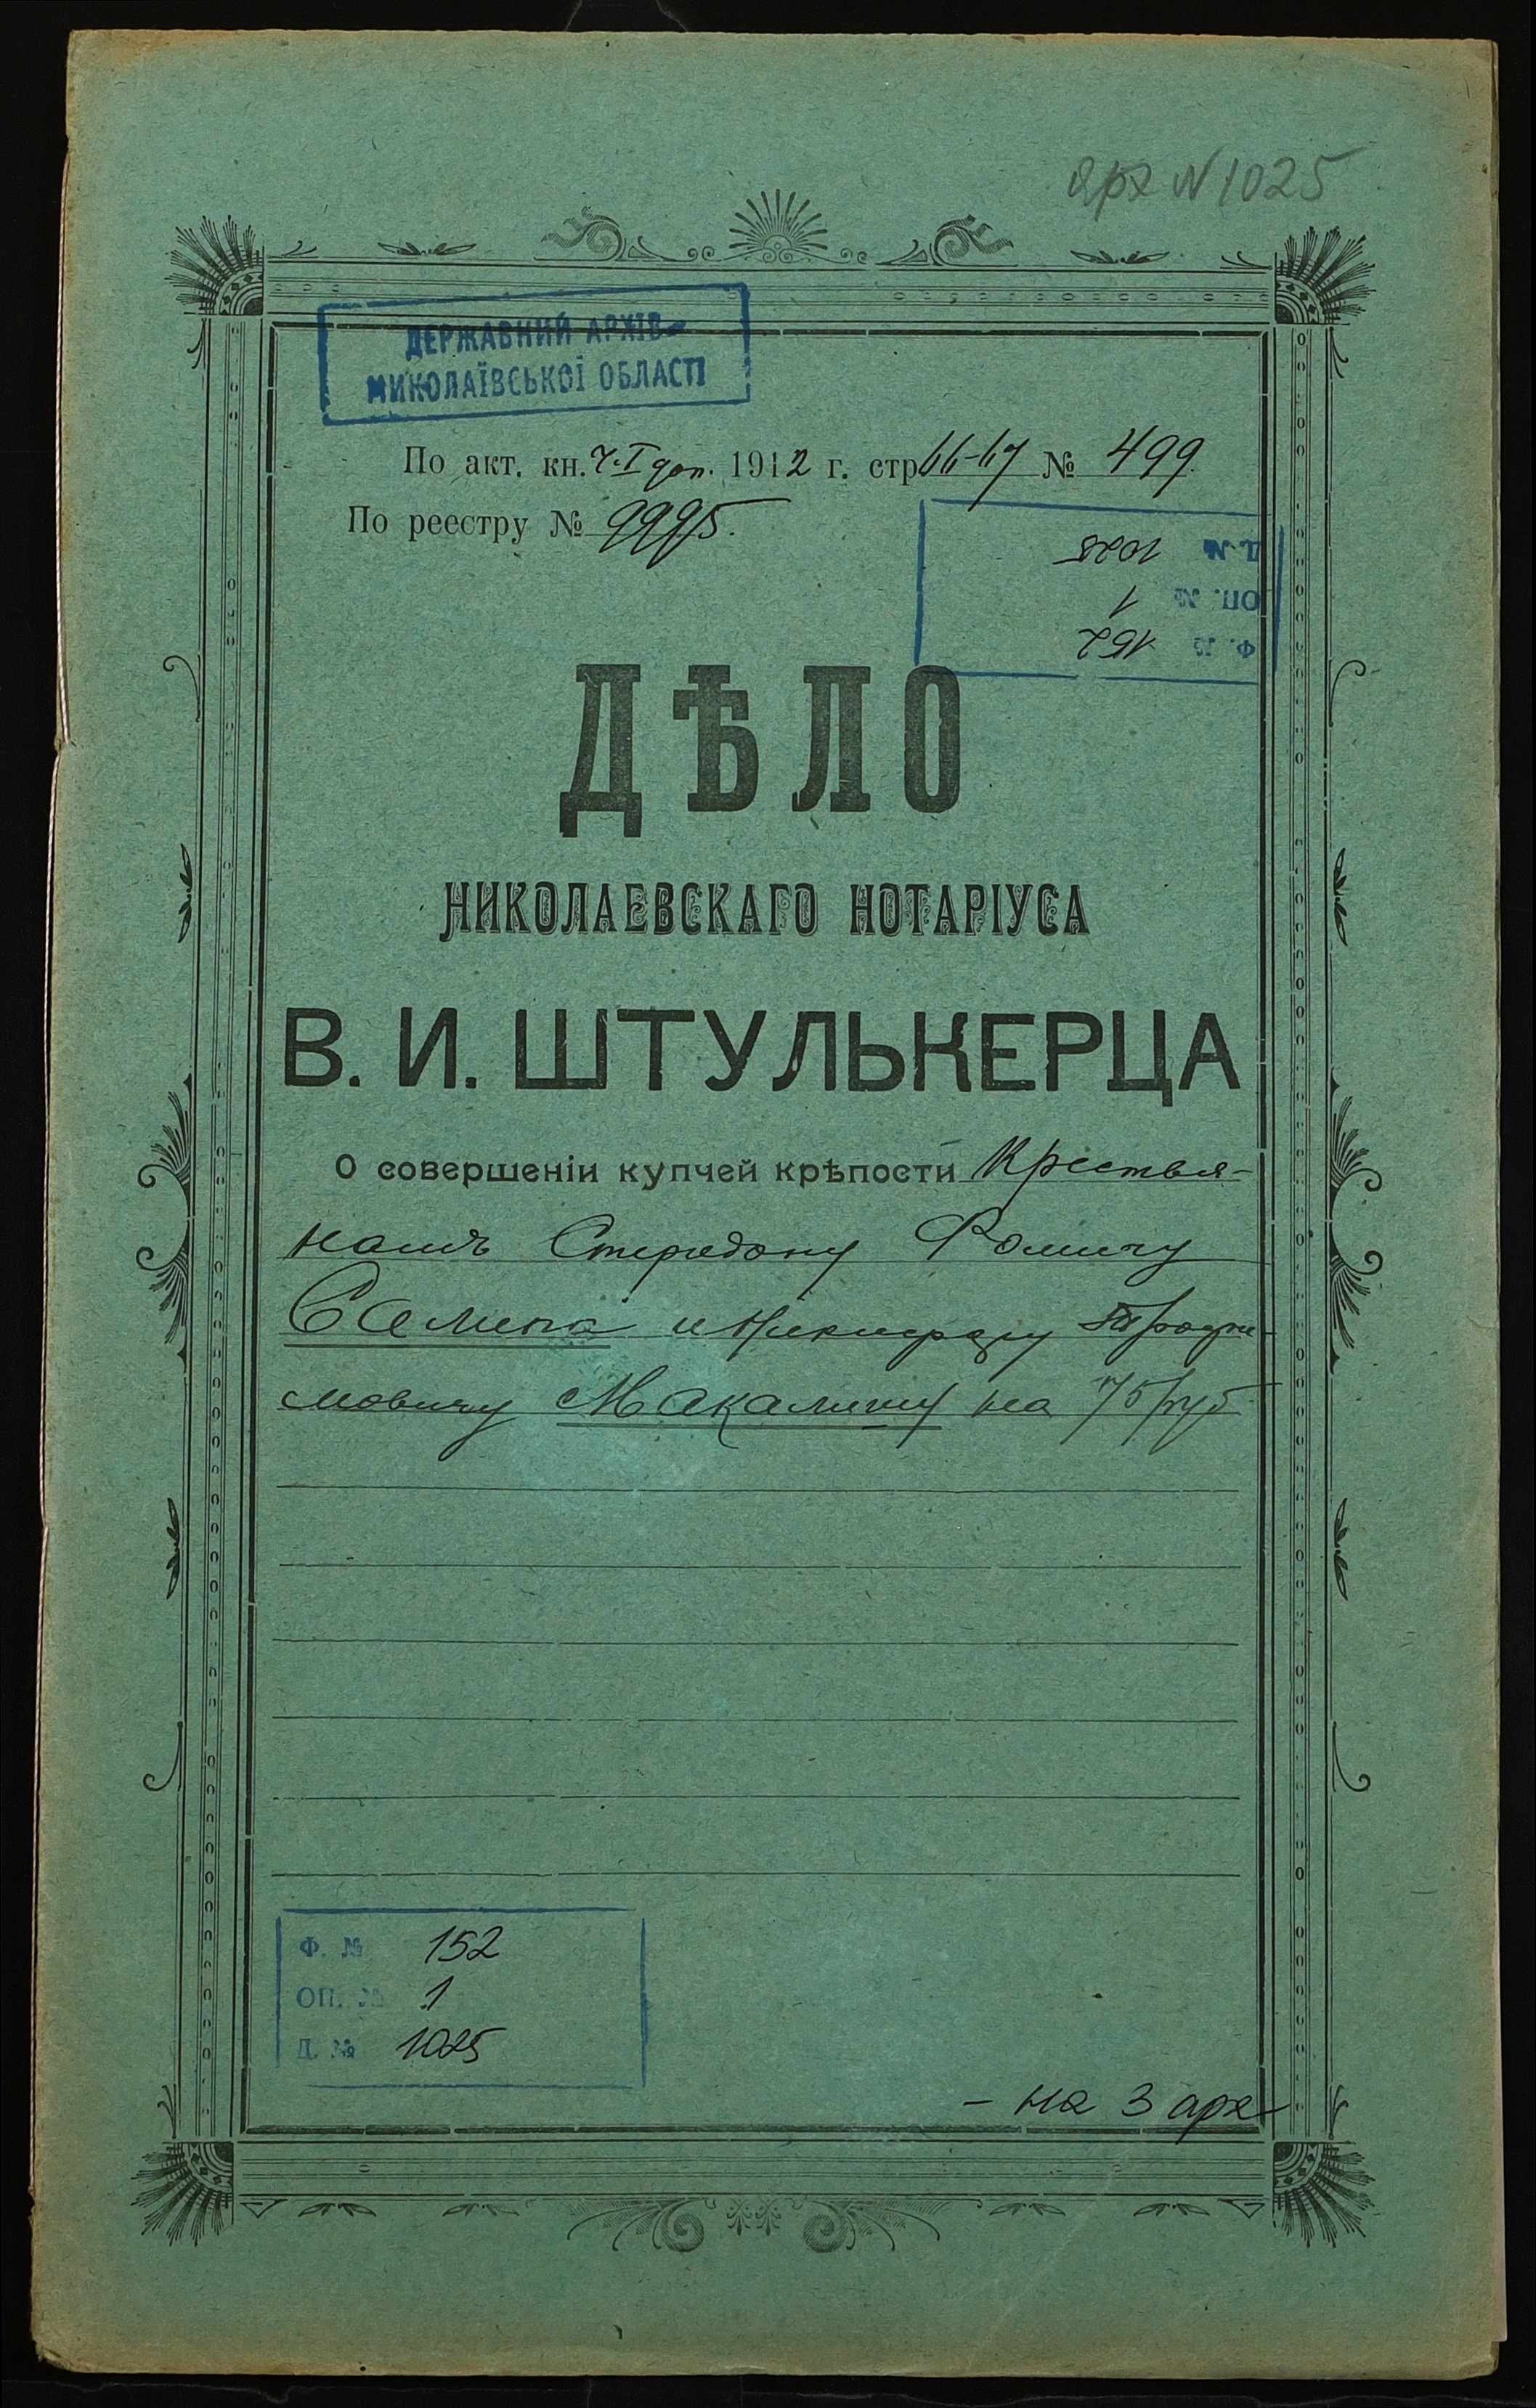 арх N 1025
ДЕРЖАВНИЙ АРХІВ
МИКОЛАЇВСЬКОЇ ОБЛАСТІ
По акт. кн. ч. I доп. 1912 г. стр 66-67 № 499.
По реестру № 9995.
Д. № 1025
ОП. № 1
Ф. № 152
ДѢЛО
НИКОЛАЕВСКАГО НОТАРІУСА
В. И. ШТУЛЬКЕРЦА
О совершеніи купчей крѣпости Крестья-
намъ Спиридону Фомичу
и Никифору
мовичу Макалишу на 75 руб
Ф. № 152
ОП. № 1
Д. № 1025
- на 3 арх